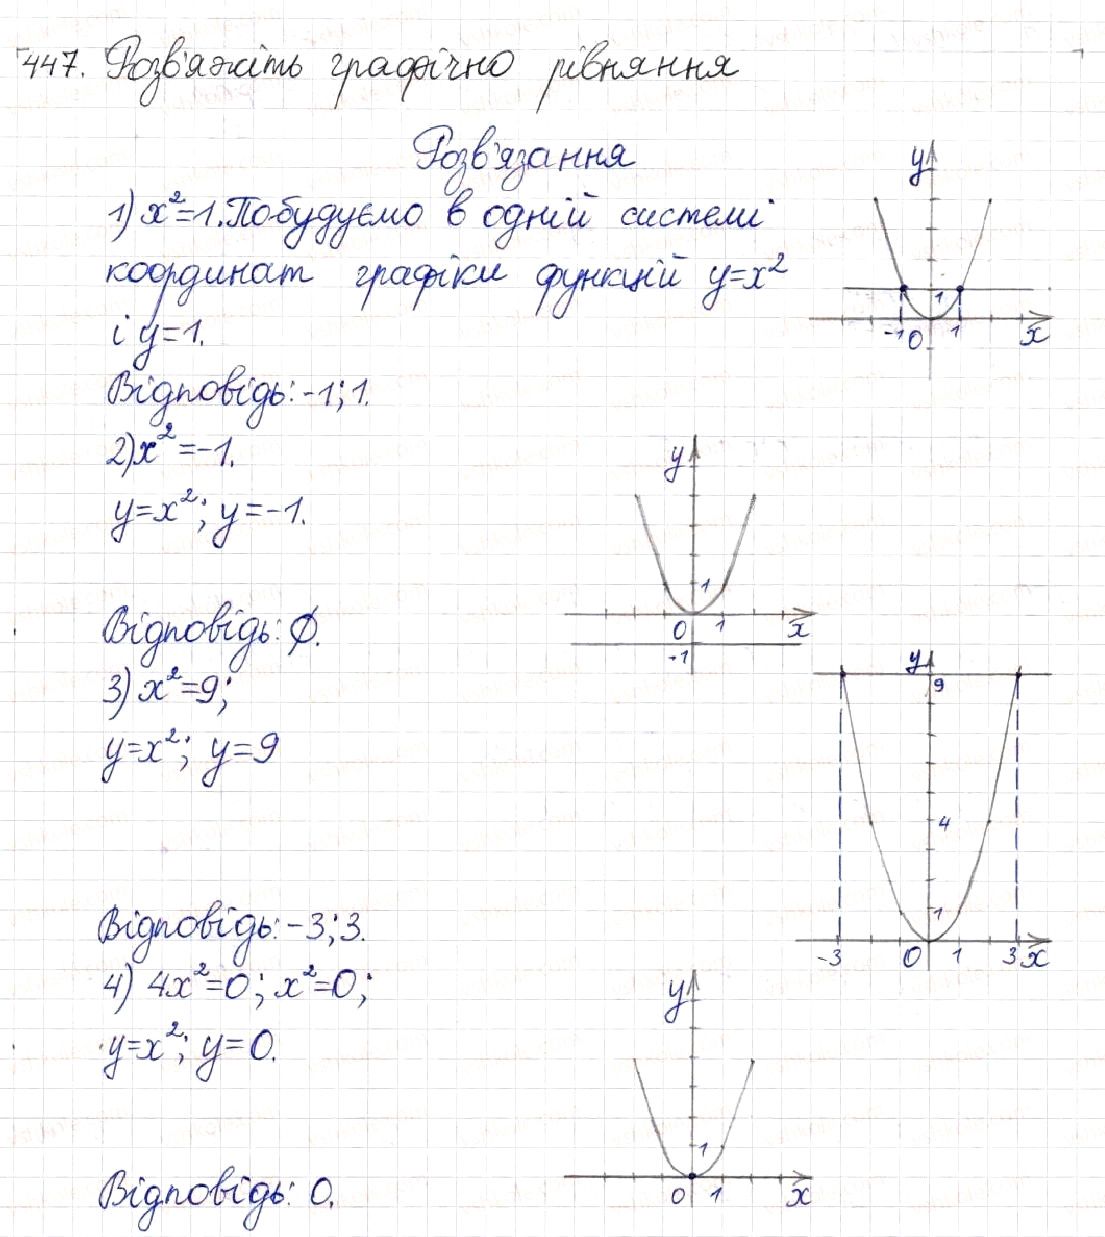 447. Розв'яжіть графічно рівняння
Розв'язання
1) x²=1. Побудуємо в одній системі
координат графіки функцій y=x²
і y=1.
y
1
-1 0 1 x
Відповідь: -1; 1.
2) x²=-1.
y=x²; y=-1.
y
1
0 1 x
-1
Відповідь: ∅.
3) x²=9;
y=x²; y=9
y
9
4
1
-3 0 1 3 x
Відповідь: -3; 3.
4) 4x²=0; x²=0;
y=x²; y=0.
y
1
0 1 x
Відповідь: 0.